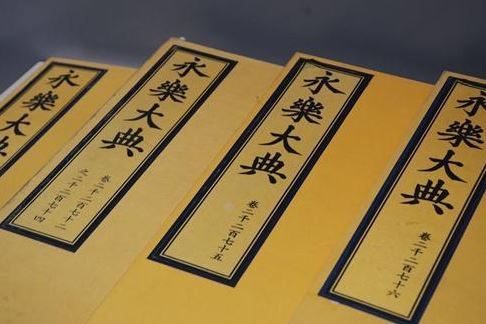 永樂大典
永樂大典
卷二千二百七十二
之二千二百七十四
永樂大典
卷二千二百七十五
永樂大典
卷二千二百七十六